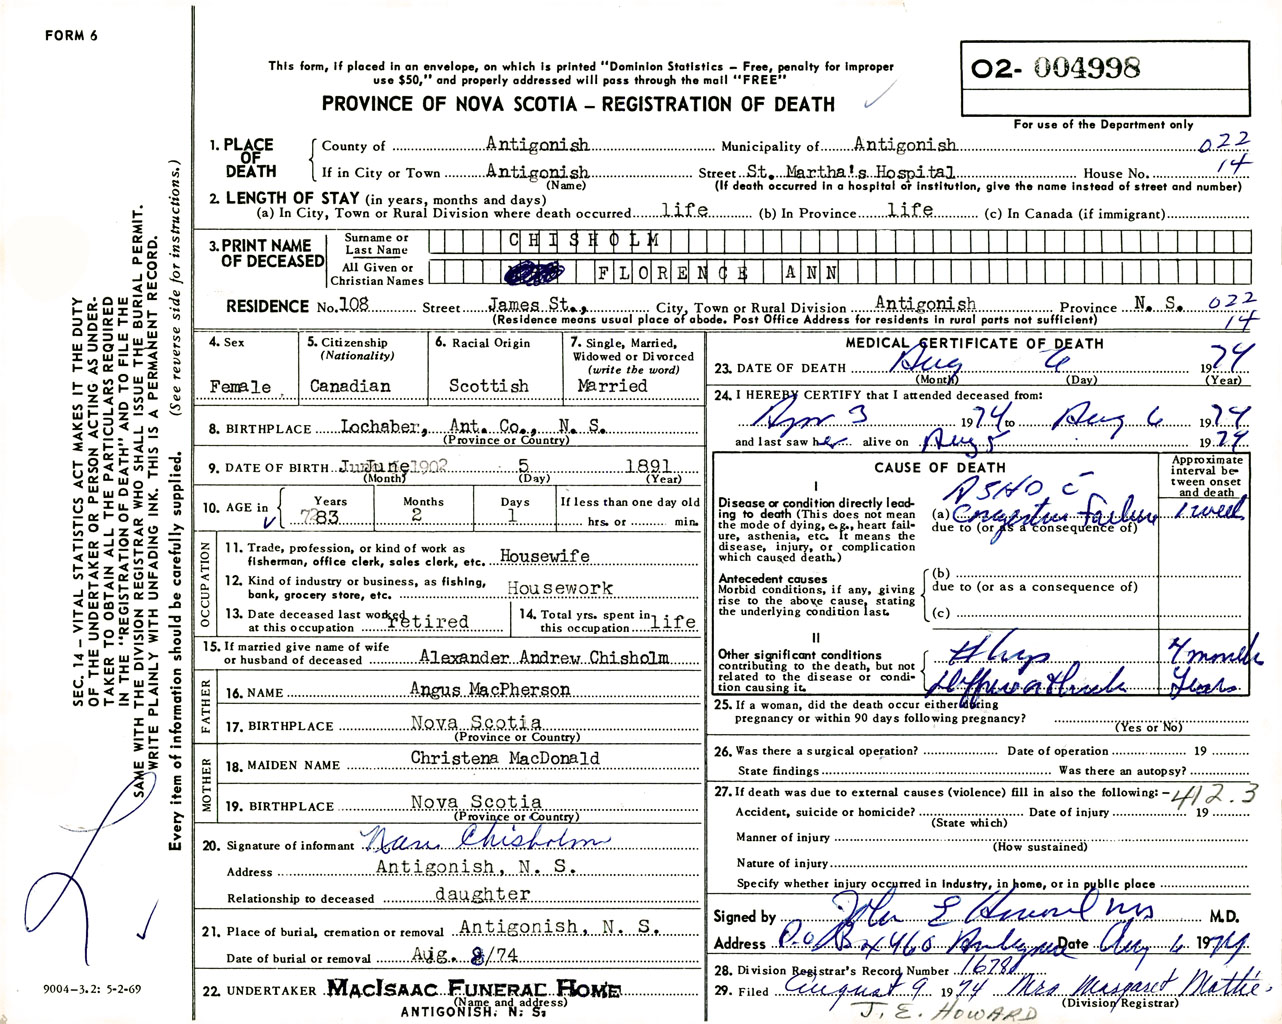 FORM 6
This form, if placed in an envelope, on which is printed "Dominion Statistics – Free, penalty for improper
use $50," and properly addressed will pass through the mail "FREE"
O2- 004998
PROVINCE OF NOVA SCOTIA – REGISTRATION OF DEATH
For use of the Department only
1. PLACE OF DEATH
County of Antigonish Municipality of Antigonish 022
If in City or Town Antigonish Street St. Martha's Hospital House No. 14
(Name) (If death occurred in a hospital or institution, give the name instead of street and number)
2. LENGTH OF STAY (in years, months and days)
(a) In City, Town or Rural Division where death occurred life (b) In Province life (c) In Canada (if immigrant)
3. PRINT NAME OF DECEASED
Surname or Last Name CHISHOLM
All Given or Christian Names FLORENCE ANN
RESIDENCE No. 108 Street James St., City, Town or Rural Division Antigonish Province N. S. 022
(Residence means usual place of abode. Post Office Address for residents in rural parts not sufficient) 14
4. Sex Female
5. Citizenship (Nationality) Canadian
6. Racial Origin Scottish
7. Single, Married, Widowed or Divorced (write the word) Married
8. BIRTHPLACE Lochaber, Ant. Co., N. S.
(Province or Country)
9. DATE OF BIRTH June 1902 5 1891
(Month) (Day) (Year)
10. AGE in Years 83 Months 2 Days 1 If less than one day old hrs. or min.
OCCUPATION
11. Trade, profession, or kind of work as
fisherman, office clerk, sales clerk, etc. Housewife
12. Kind of industry or business, as fishing,
bank, grocery store, etc. Housework
13. Date deceased last worked
at this occupation retired
14. Total yrs. spent in
this occupation life
15. If married give name of wife
or husband of deceased Alexander Andrew Chisholm
FATHER
16. NAME Angus MacPherson
17. BIRTHPLACE Nova Scotia
(Province or Country)
MOTHER
18. MAIDEN NAME Christena MacDonald
19. BIRTHPLACE Nova Scotia
(Province or Country)
20. Signature of informant Chisholm
Address Antigonish, N. S.
Relationship to deceased daughter
21. Place of burial, cremation or removal Antigonish, N. S.
Date of burial or removal Aug. 8/74
22. UNDERTAKER MACISAAC FUNERAL HOME
(Name and address)
ANTIGONISH. N. S.
MEDICAL CERTIFICATE OF DEATH
23. DATE OF DEATH Aug 6 1974
(Month) (Day) (Year)
24. I HEREBY CERTIFY that I attended deceased from:
Apr 3 1974 to Aug 6 1974
and last saw her alive on Aug 5 1974
CAUSE OF DEATH
Approximate interval between onset and death
I
Disease or condition directly leading to death (This does not mean the mode of dying, e.g., heart failure, asthenia, etc. It means the disease, injury, or complication which caused death.)
ASHD c
(a) Congestive Failure 1 week
due to (or as a consequence of)
Antecedent causes
Morbid conditions, if any, giving rise to the above cause, stating the underlying condition last.
(b)
due to (or as a consequence of)
(c)
II
Other significant conditions contributing to the death, but not related to the disease or condition causing it.
4 months
Years
25. If a woman, did the death occur either during
pregnancy or within 90 days following pregnancy?
(Yes or No)
26. Was there a surgical operation? Date of operation 19
State findings Was there an autopsy?
27. If death was due to external causes (violence) fill in also the following: – 412.3
Accident, suicide or homicide? Date of injury 19
(State which)
Manner of injury
(How sustained)
Nature of injury
Specify whether injury occurred in industry, in home, or in public place
Signed by John E Howard M.D.
Address P.O. Box 460 Antigonish Date Aug 6 1974
28. Division Registrar's Record Number
29. Filed August 9 1974 Mrs Margaret
(Division Registrar)
J. E. HOWARD
SEC. 14 – VITAL STATISTICS ACT MAKES IT THE DUTY
OF THE UNDERTAKER OR PERSON ACTING AS UNDER-
TAKER TO OBTAIN ALL THE PARTICULARS REQUIRED
IN THE "REGISTRATION OF DEATH" AND TO FILE THE
SAME WITH THE DIVISION REGISTRAR WHO SHALL ISSUE THE BURIAL PERMIT.
WRITE PLAINLY WITH UNFADING INK. THIS IS A PERMANENT RECORD.
Every item of information should be carefully supplied. (See reverse side for instructions.)
9004–3.2: 5-2-69